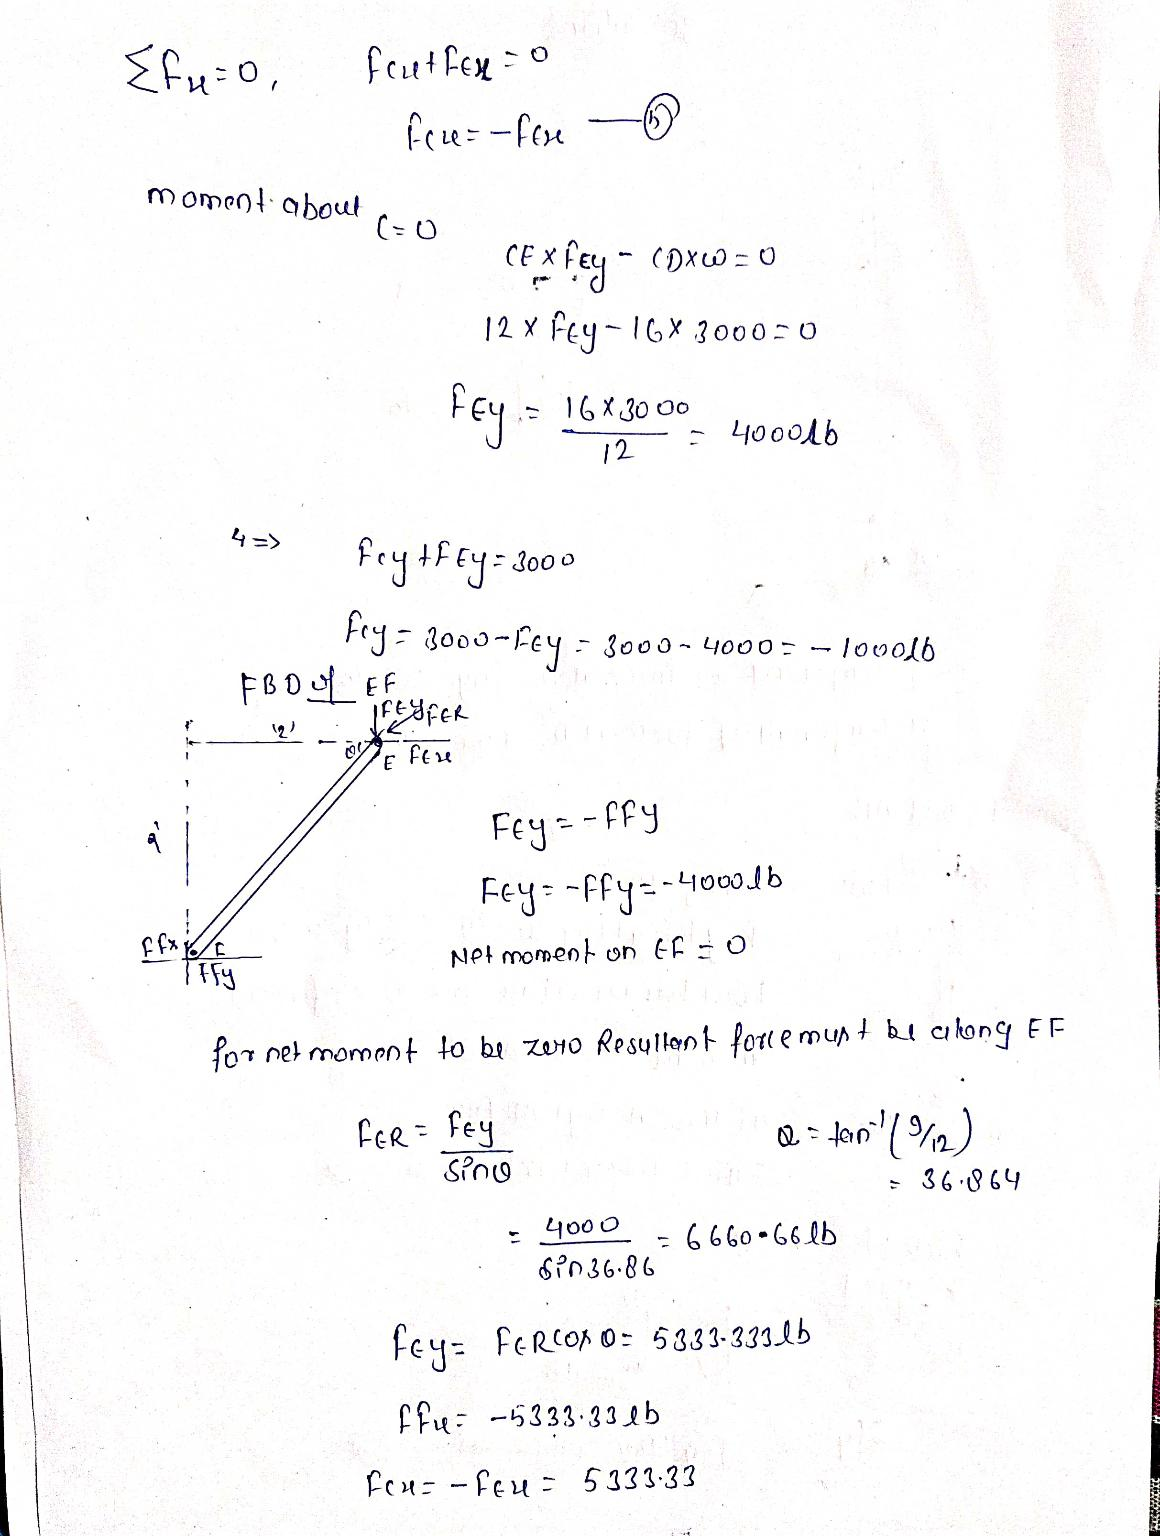 Σfx=0, fcx+fEx=0
fcx=-fEx —(5)
moment about C=0
CE×fEy - CD×W=0
12×fEy-16×3000=0
fEy = 16×3000/12 = 4000lb
4=> fcy+fEy=3000
fcy=3000-fEy=3000-4000=-1000lb
FBD of EF
fEy fER
12'
θ E fEx
9'
ffx F
ffy
FEy=-ffy
FEy=-ffy=-4000lb
Net moment on EF=0
for net moment to be zero Resultant force must be along EF
fER= fEy/sinθ
θ=tan⁻¹(9/12)
= 36.864
= 4000/sin36.86 = 6660.66lb
fEy= fERcosθ= 5333.333lb
ffx= -5333.33lb
fcx=-fEx= 5333.33